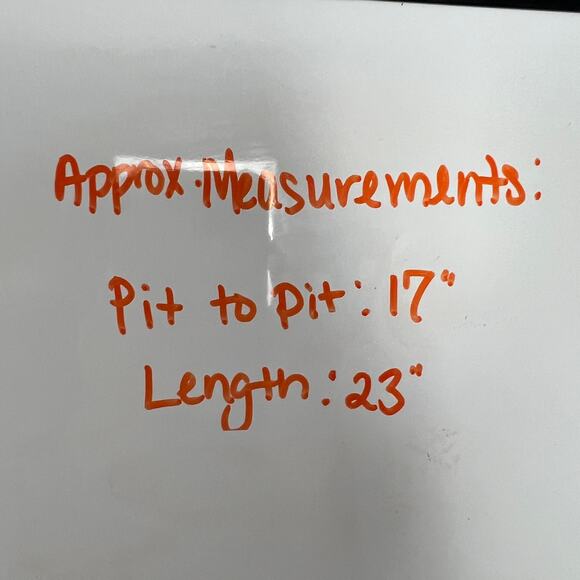 Approx. Measurements:
Pit to pit: 17"
Length: 23"